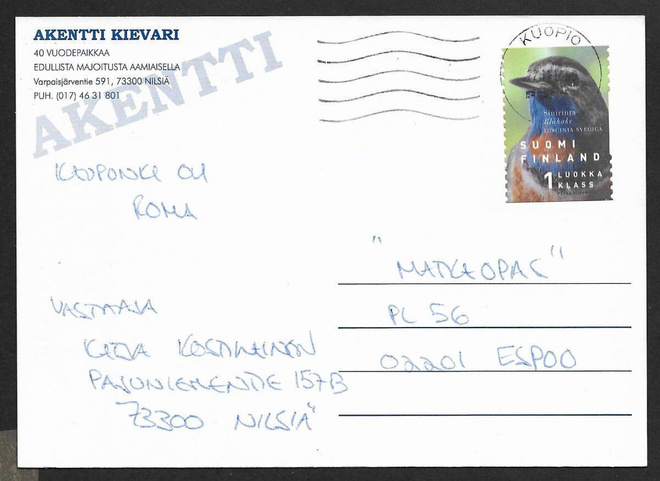 AKENTTI KIEVARI
40 VUODEPAIKKAA
EDULLISTA MAJOITUSTA AAMIAISELLA
Varpaisjärventie 591, 73300 NILSIÄ
PUH. (017) 46 31 801
AKENTTI
KUOPIO
Sinirinta
Blåhake
LUSCINIA SVECICA
SUOMI
FINLAND
1 LUOKKA
KLASS
KAUPUNKI ON
ROMA
"MATKAOPAS"
PL 56
02201 ESPOO
VASTAAJA
KATJA KOSTIAINEN
157B
73300 NILSIÄ